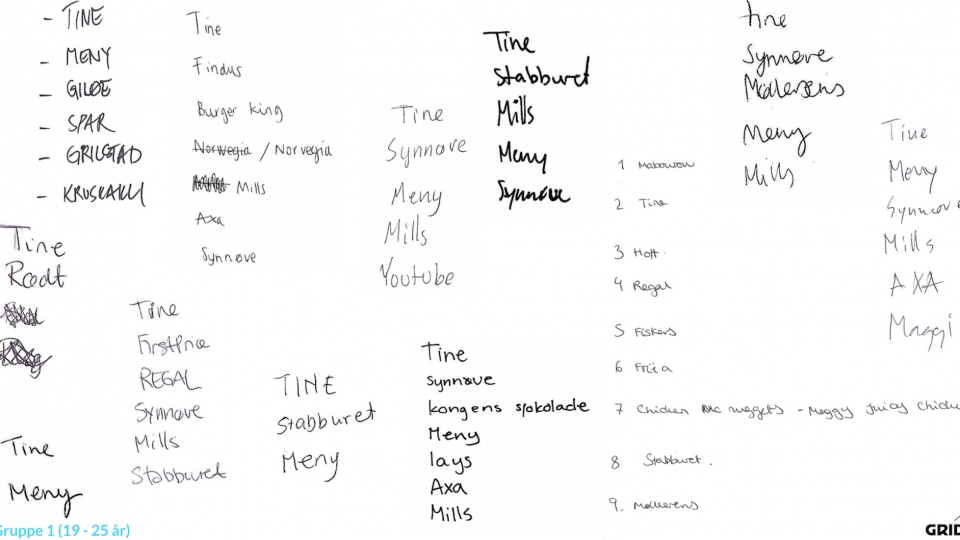 - TINE
- MENY
- GILDE
- SPAR
- GRILSTAD
- KRUSKAKLI
Tine
Findus
Burger king
Norwegia / Norvegia
Mills
Axa
Synnøve
Tine
Synnøve
Meny
Mills
Youtube
Tine
Stabburet
Mills
Meny
Synnøve
Tine
Synnøve
Møllerens
Meny
Mills
Tine
Meny
Synnøve
Mills
AXA
Maggi
1
2 Tine
3 Hoff.
4 Regal
5 Fiskers
6 Freia
7 Chicken Mc nuggets - Meggy Juicy Chicke
8 Stabburet.
9. Møllerens
Tine
Rødt
Tine
Meny
Tine
FirstPrice
REGAL
Synnøve
Mills
Stabburet
TINE
Stabburet
Meny
Tine
Synnøve
kongens sjokolade
Meny
lays
Axa
Mills
Gruppe 1 (19 - 25 år)
GRID